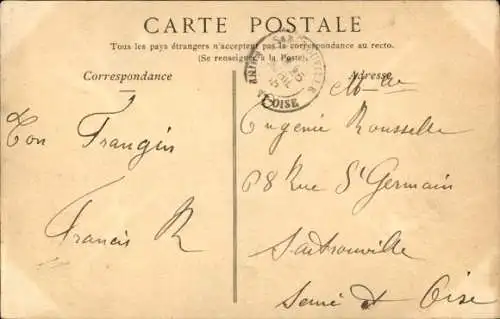 CARTE POSTALE
Tous les pays étrangers n'acceptent pas la correspondance au recto.
(Se renseigner à la Poste).
Correspondance
Adresse
SARTROUVILLE
Sne ET OISE
Ton Frangin
Francis R
Melle
Eugenie Rousselle
68 Rue St Germain
Sartrouville
Seine et Oise